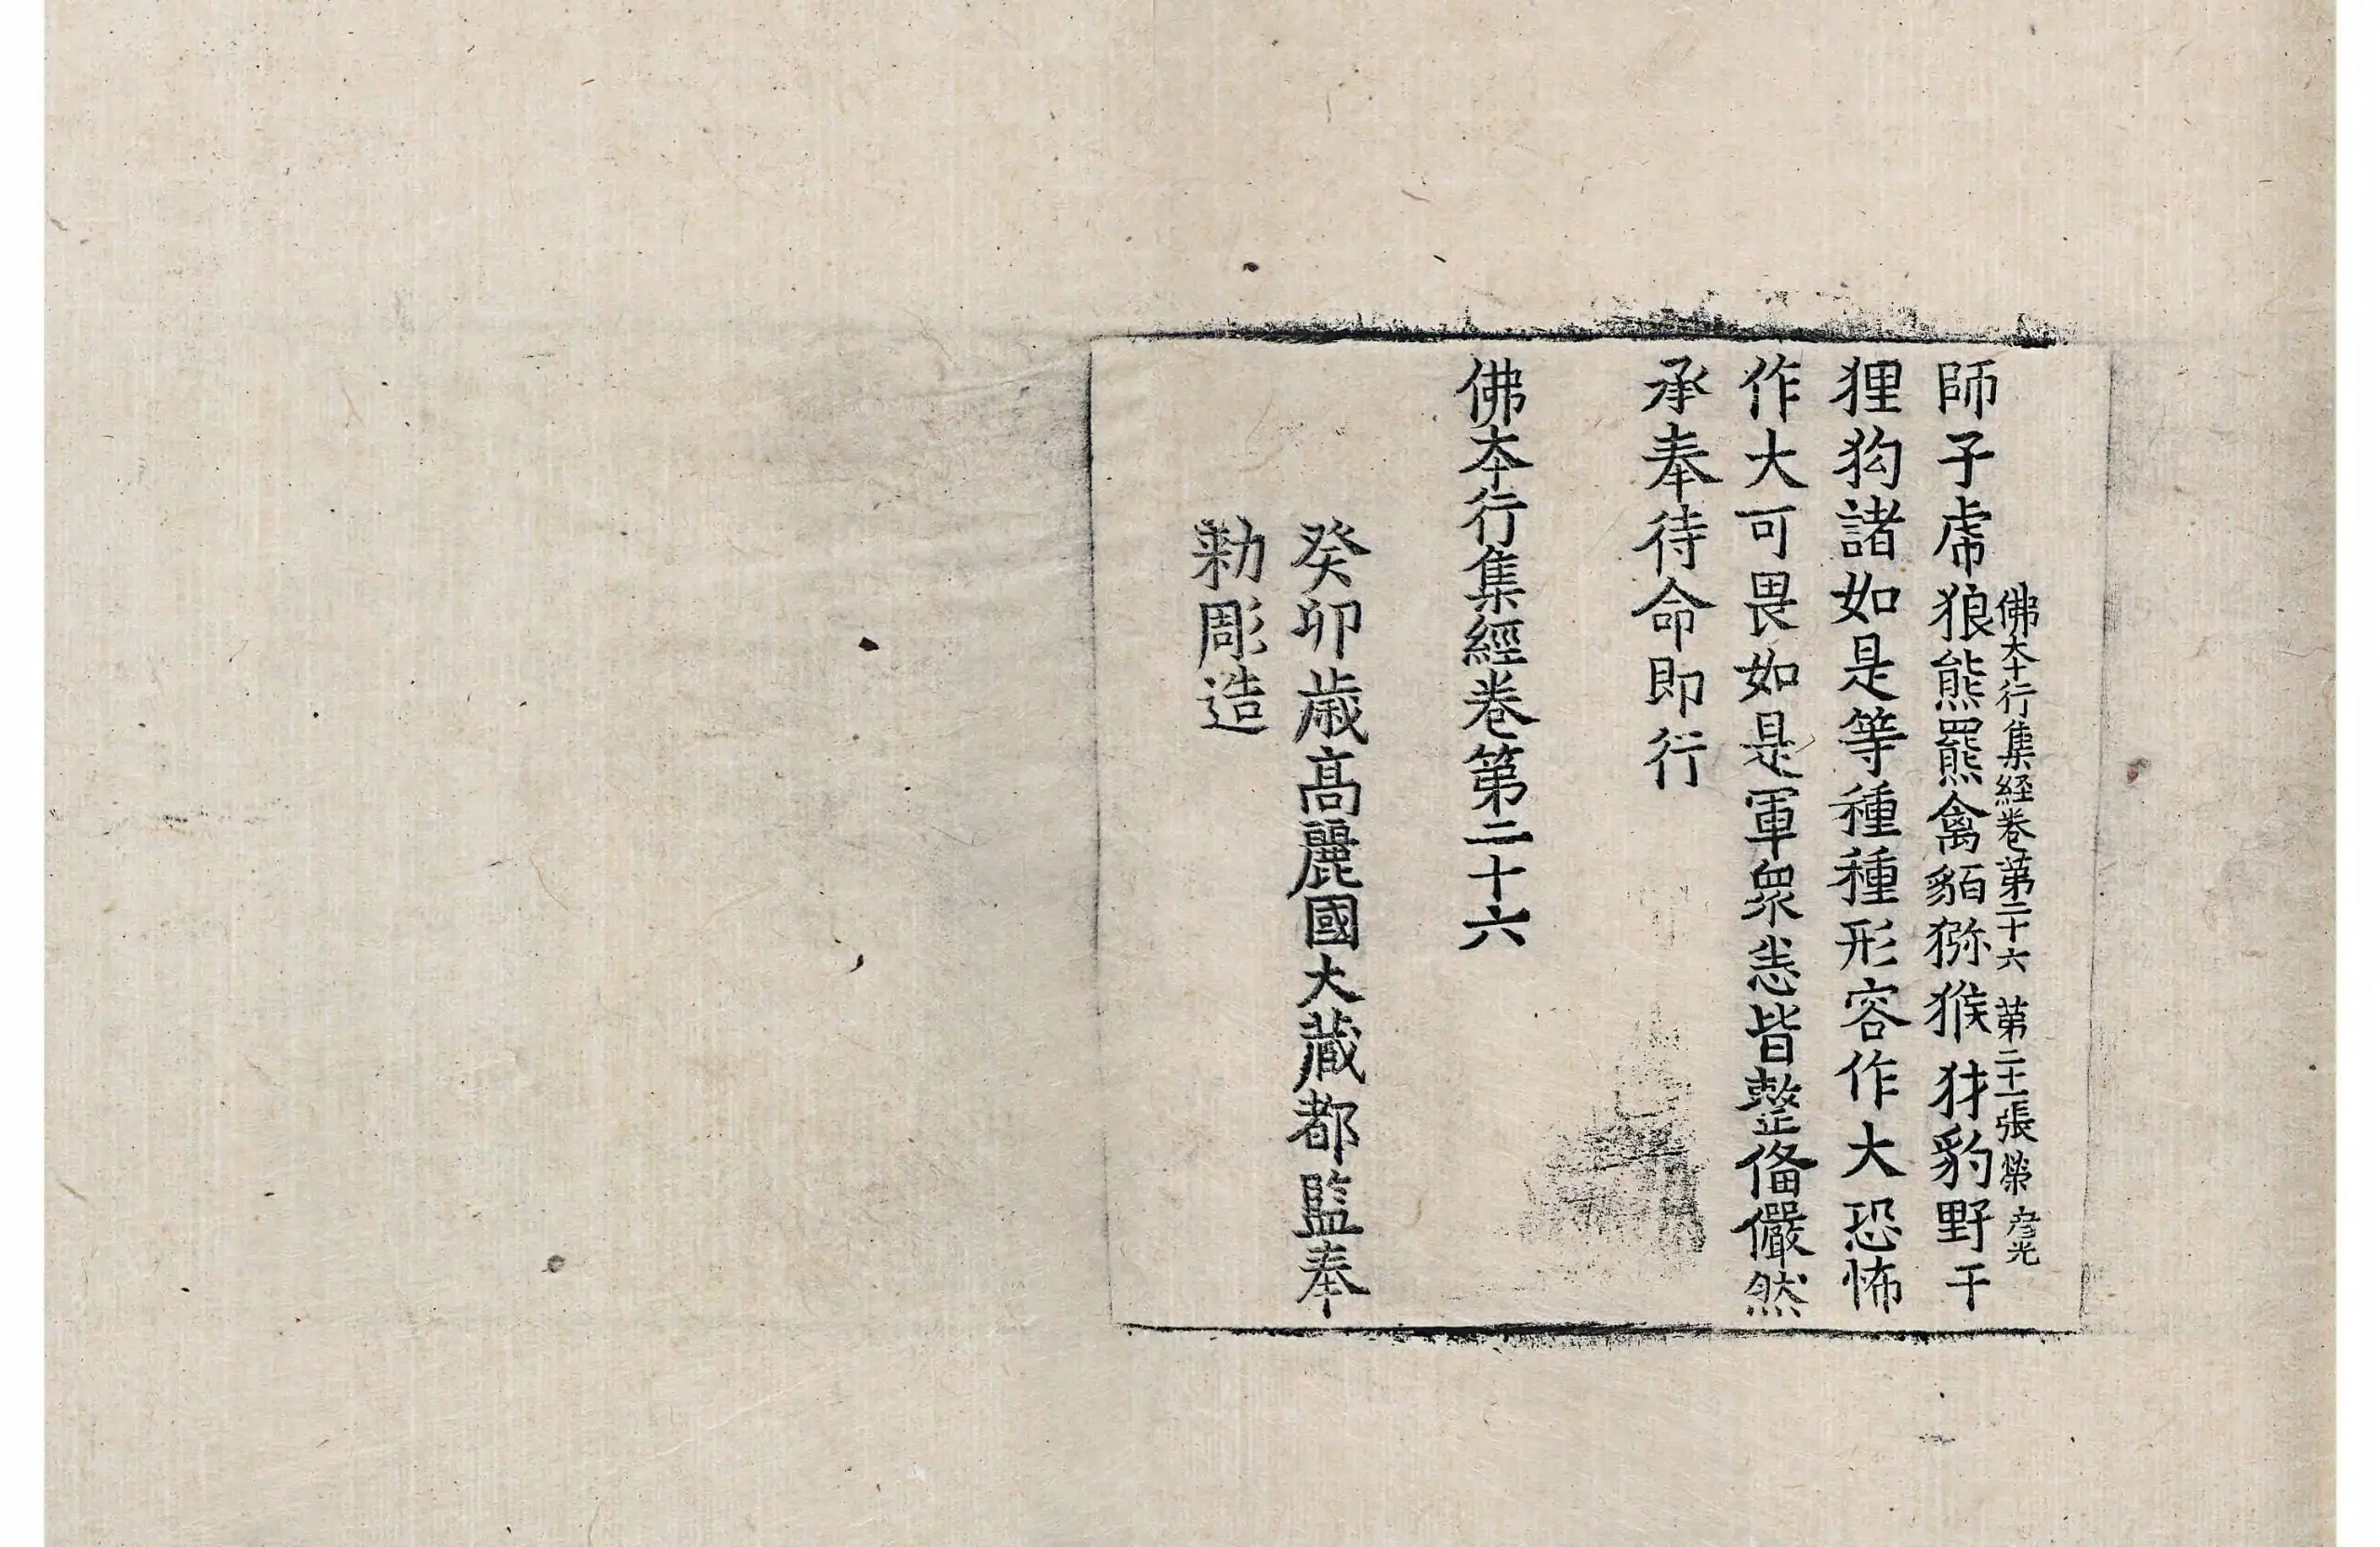 佛本行集經卷第二十六 第二十一張 㭍 彦光
師子虎狼熊羆禽貊猕猴犲豹野干
狸狗諸如是等種種形容作大恐怖
作大可畏如是軍衆恙皆整俻儼然
承奉待命即行
佛本行集經卷第二十六
癸卯歳高麗國大藏都監奉
勑彫造